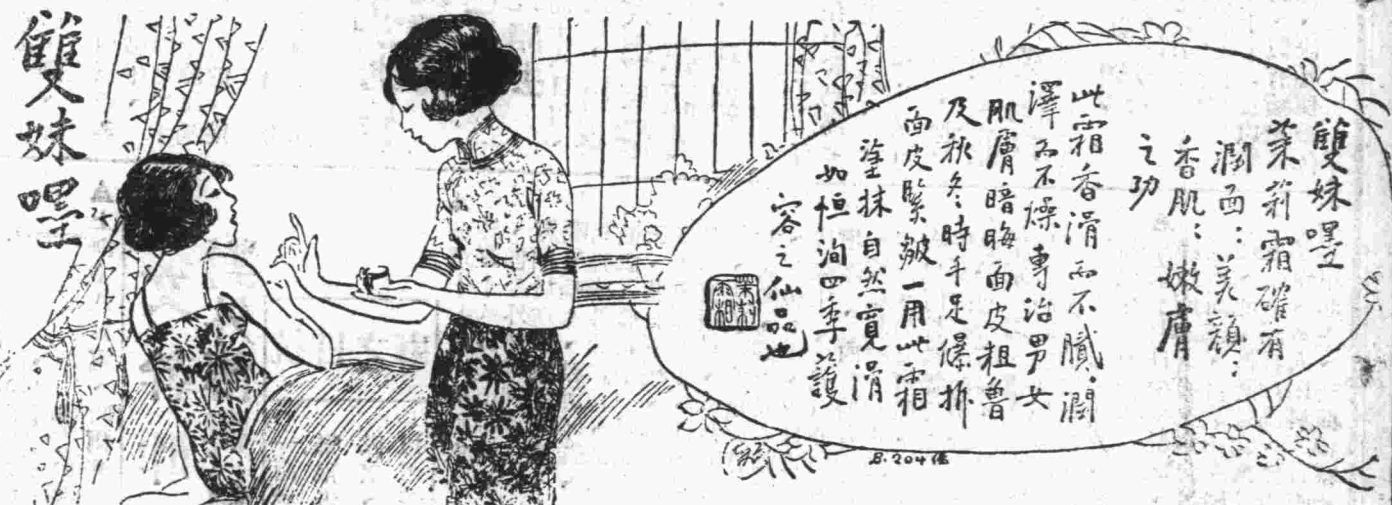 雙妹嘿
雙妹嘿
茉莉霜確有
潤面：美顏：
香肌：嫩膚
之功
此霜香滑而不膩潤
澤而不燥專治男女
肌膚暗晦面皮粗魯
及秋冬時手足爆拆
面皮緊皺一用此霜
塗抹自然寬滑
如恒洵四季護
容之仙品也
茉莉
霜
B.204